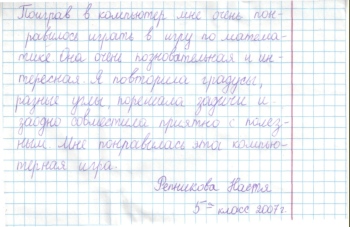 Поиграв в компьютер мне очень пон-
равилось играть в игру по матема-
тике. Она очень позновательная и ин-
тересная. Я повторила градусы,
разные углы, порешала задачи и
заодно совместила приятно с полез-
ным. Мне понравилась эта компью-
терная игра.
Репникова Настя
5 класс 2007г.